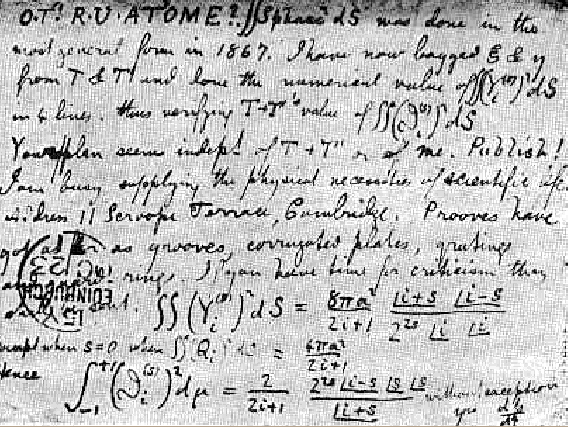 O.T'! R.U. ATOME? ∬Spharc² dS was done in the
most general form in 1867. I have now bagged ξ & η
from T & T' and done the numerical value of ∬(Y_i^(s))² dS
in 4 lines. thus verifying T+T''s value of ∬(ϑ_i^(s))² dS
Your plan seems indept. of T + T' or of me. Publish!
I am busy supplying the physical necessities of scientific life
11 Scroope Terrace, Cambridge. Prooves have
got as far as grooves, corrugated plates, gratings
rings. If you have time for criticism they
sent. ∬(Y_i^(s))² dS = 8πa²/(2i+1) |i+s |i−s / (2^2s |i |i)
except when s=0 when ∬(Q_i)² dS = 4πa²/(2i+1)
Hence ∫_{-1}^{+1} (ϑ_i^(s))² dμ = 2/(2i+1) 2^2s |i−s |s |s / |i+s without exception
yrs dp/dt
EDINBURGH